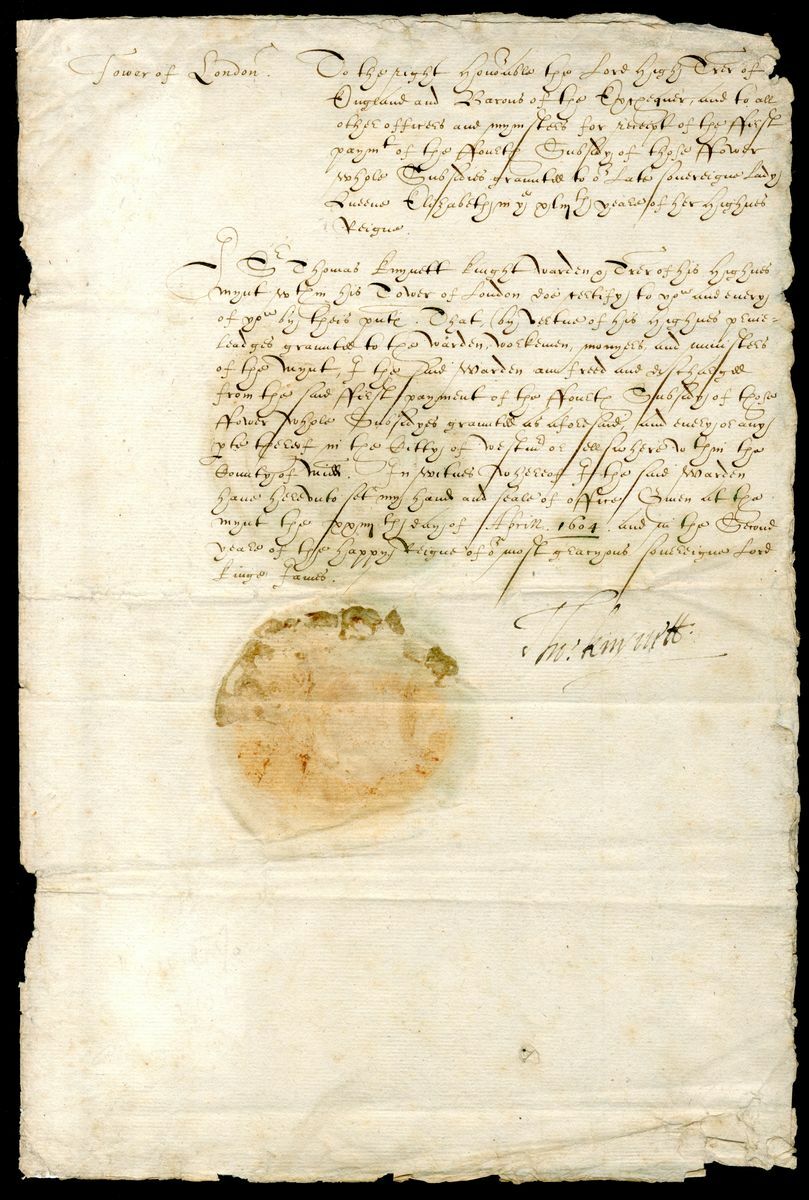 Tower of London. To the right Honorable the Lord High Trer of
England and Barons of the Exchequer, and to all
other officers and mynisters for receipt of the ffirst
paymt of the ffourth Subsidy of those ffower
whole Subsidies graunted to or Late sovereigne Lady
Queene Elizabeth, in ye xliijth yeare of her highnes
Reigne.
I Sr Thomas Knyvett knight warden & Trer of his highnes
mynt wthin his Tower of London doe certify to yor and every
of yow by theis pntes. That (by vertue of his highnes prive-
leadges graunted to the warden, workemen, monyers, and ministers
of the mynt, I the said warden am freed and discharged
from the said ffirst payment of the ffourth Subsidy of those
ffower whole Subsidyes graunted as aforesaid, and every or any
pte thereof in the Citty of westmr or ellswhere wthin the
County of Midd. In witnes whereof I the said warden
have herevnto set my hand and seale of office. Given at the
mynt the xxiijth day of Aprill. 1604. and in the Second
yeare of the happy Reigne of or most gracyous sovereigne Lord
kinge James.
Tho: Knyvett.